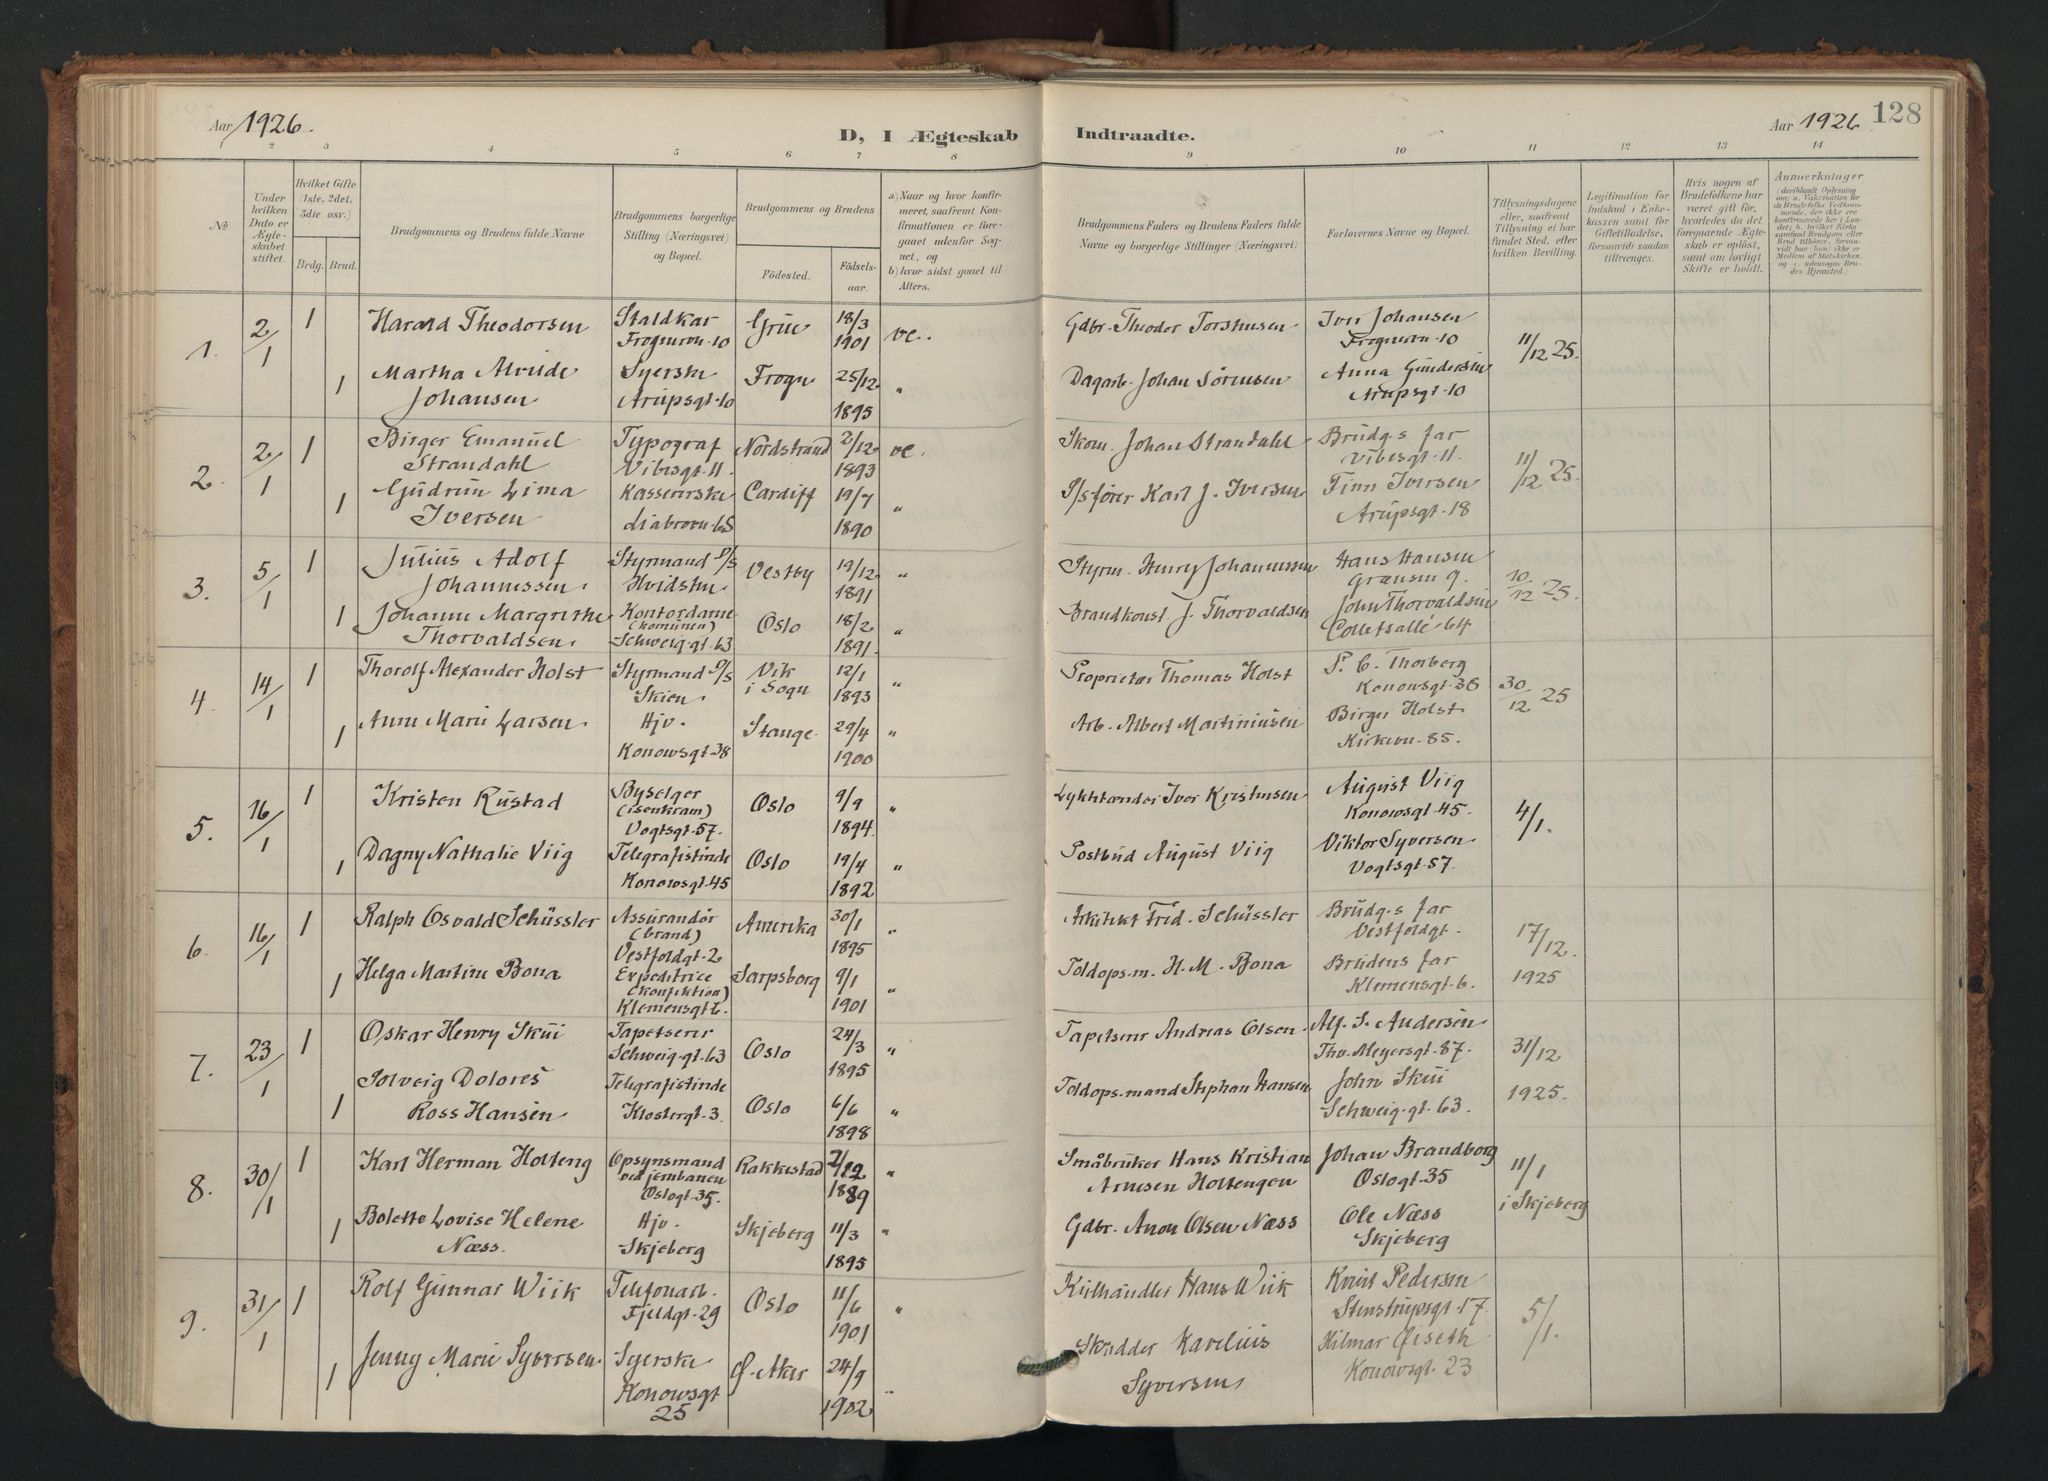 Aar 1926.
D, I Ægteskab Indtraadte.
Aar 1926
128
1 2 3 4 5 6 7 8 9 10 11 12 13 14
No
Under hvilken Dato er Ægteskabet stiftet.
Hvilket Gifte (1ste, 2det, 3die osv.)
Brdg. Brud.
Brudgommens og Brudens fulde Navne
Brudgommens borgerlige Stilling (Næringsvei) og Bopæl.
Brudgommens og Brudens
Födested.
Födselsaar.
a) Naar og hvor konfirmeret, saafremt Konfirmationen er foregaaet udenfor Sognet, og
b) hvor sidst gaaet til Alters.
Brudgommens Faders og Brudens Faders fulde Navne og borgerlige Stillinger (Næringsvei)
Forlovernes Navne og Bopæl.
Tillysningsdagene eller, saafremt Tillysning ei har fundet Sted, efter hvilken Bevilling.
Legitimation for Indskud i Enkekassen samt for Giftetilladelse, forsaavidt saadan tiltrænges.
Hvis nogen af Brudefolkene har været gift för, hvorledes da det foregaaende Ægteskab er oplöst, samt om lovligt Skifte er holdt.
Anmærkninger
1. 2/1 1 Harald Theodorsen Staldkar Frognerv. 10 Grue 18/3 1901 ve. Gdbr. Theodor Torstensen Iver Johansen Frognerv. 10 11/12 25.
1 Martha Alvilde Johansen Syerske Arupsgt. 10 Frogn 25/12 1895 " Dagarb. Johan Sørensen Anna Gundersen Arupsgt. 10
2. 2/1 1 Birger Emanuel Strandahl Typograf Vibesgt. 11. Nordstrand 2/12 1893 ve. Skom. Johan Strandahl Brudg.s far Vibesgt. 11. 11/12 25.
1 Gudrun Lima Iversen Kassererske Liabrovn. 65 Cardiff 19/7 1890 " S/sfører Karl J. Iversen Finn Iversen Arupsgt. 18
3. 5/1 1 Julius Adolf Johannessen Styrmand D/S Hvidsten Vestby 19/12 1891 " Styrm. Henry Johannessen Hans Hansen Grænsen 9. 10/12 25.
1 Johanne Margrethe Thorvaldsen. Kontordame (komunen) Schweig.gt. 63 Oslo 18/2 1891. " Brandkonst. J. Thorvaldsen John Thorvaldsen Colletsallé 64
4. 14/1 1 Thorolf Alexander Holst Styrmand D/S Skien Vik i Sogn 12/1 1893 " Proprietær Thomas Holst P. C. Thorberg Konowsgt. 38 30/12 25
1 Anne Marie Larsen. Hjv. Konowsgt. 38 Stange. 29/4 1900 " Arb. Albert Martiniusen Birger Holst Kirkevn. 85.
5. 16/1 1 Kristen Rustad Byselger (isenkram) Vogtsgt. 57. Oslo 9/9 1894. " Lyktetænder Iver Kristensen August Viig Konowsgt. 45. 4/1.
1 Dagny Nathalie Viig Telegrafistinde Konowsgt. 45 Oslo 19/4 1892 " Postbud August Viig Viktor Syversen Vogtsgt. 57.
6. 16/1 1 Ralph Osvald Schüssler Assurandør (brand) Vestfoldgt. 2 Amerika 30/1 1895 " Arkitekt Frid. Schüssler Brudg.s far Vestfoldgt. 17/12. 1925
1 Helga Martine Bona Expeditrice (konfektion) Klemensgt. 6. Sarpsborg 9/1 1901 " Toldops.m. H. M. Bona Brudens far Klemensgt. 6.
7. 23/1 1 Oskar Henry Skui Tapetserer Schweig.gt. 63 Oslo 24/3 1895 " Tapetserer Andreas Olsen. Alf. S. Andersen Thv. Meyersgt. 87. 31/12 1925.
1 Solveig Dolores Ross Hansen Telegrafistinde Klostergt. 3. Oslo 6/6 1898 " Toldops.mand Stephan Hansen John Skui Schweig.gt. 63.
8. 30/1 1 Karl Herman Holteng Opsynsmand ved jernbanen Oslogt. 35. Rakkestad 7/12 1889 " Småbruker Hans Kristian Arnesen Holtengen Johan Brandborg Oslogt. 35 11/1 i Skjeberg
1 Bolette Lovise Helene Næss. Hjv. Skjeberg Skjeberg 11/3 1895 " Gdbr. Anon Olsen Næss Ole Næss Skjeberg
9. 31/1 1 Rolf Gunnar Wiik Telefonarb. Fjeldgt. 29 Oslo 11/6 1901 " Kulhandler Hans Wiik Knut Pedersen Stenstrupsgt. 17. 5/1.
1 Jenny Marie Syversen. Syerske Konowsgt 25 Ø. Aker 24/9 1902 " Skrædder Karelius Syversen Hilmar Øiseth Konowsgt. 23